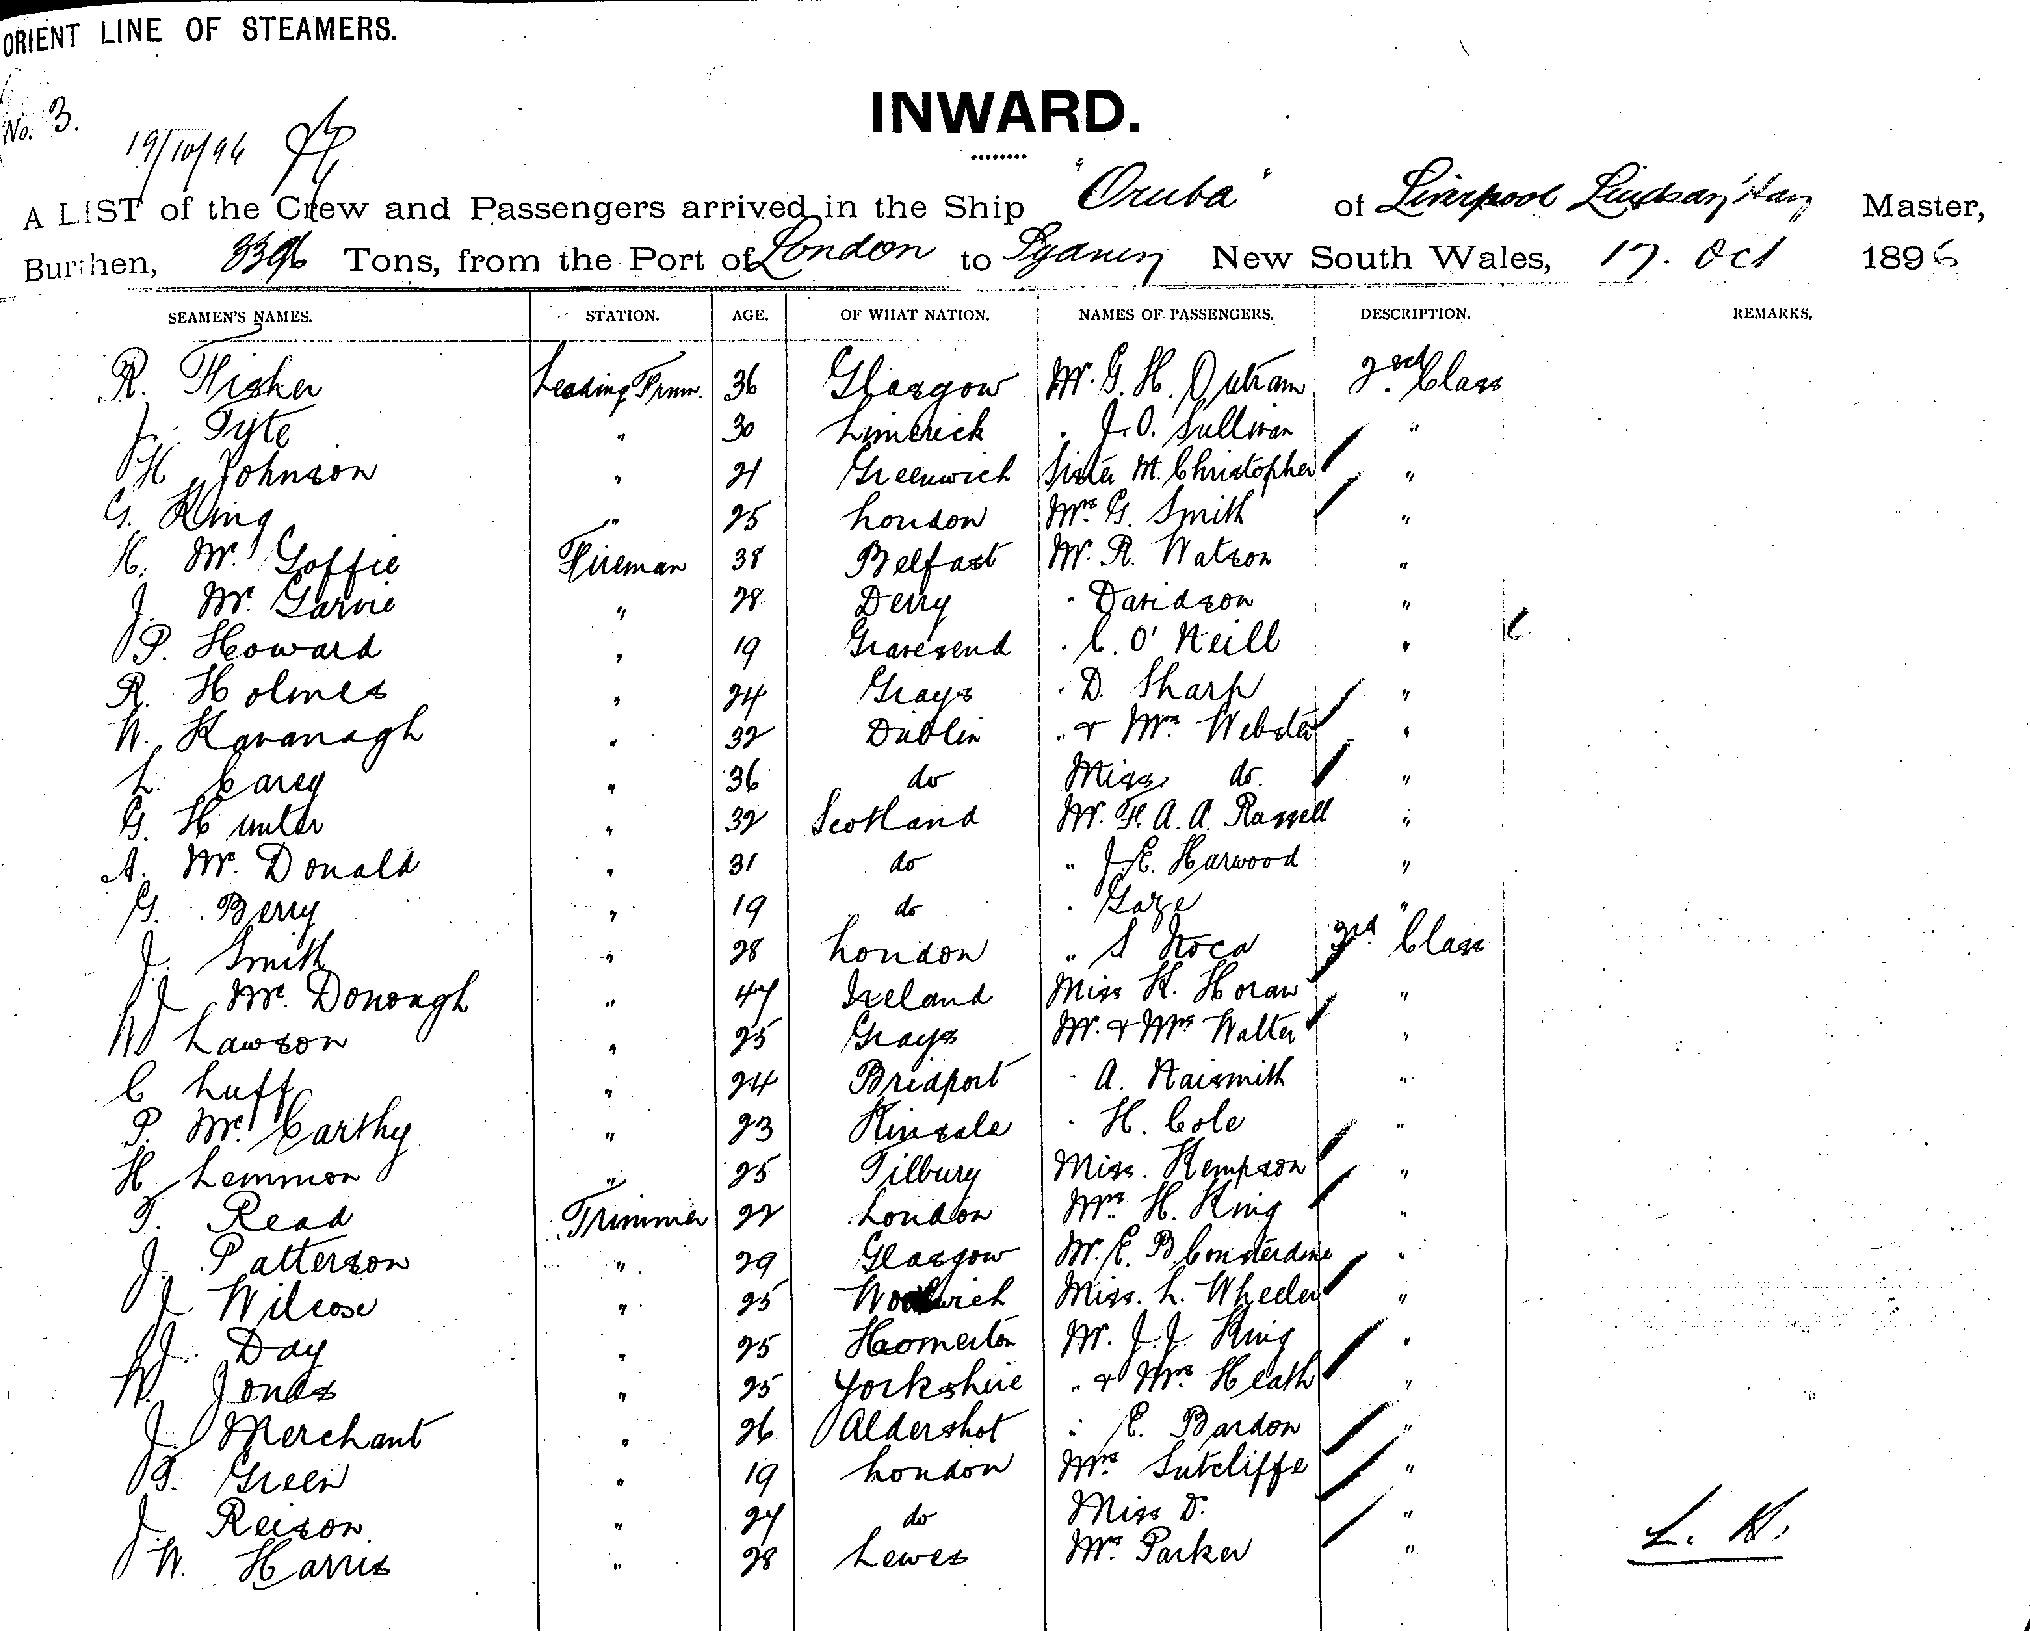 ORIENT LINE OF STEAMERS.
No. 3.
INWARD.
19/10/96
A LIST of the Crew and Passengers arrived in the Ship "Oruba" of Liverpool Lindsay Hay Master,
Burthen, Tons, from the Port of London to Sydney New South Wales, 17. Oct 1896
SEAMEN'S NAMES. STATION. AGE. OF WHAT NATION. NAMES OF PASSENGERS. DESCRIPTION. REMARKS.
R. Fisher Leading Frmn. 36 Glasgow Mr. G. H. Outram 2nd Class
J. Tyte " 30 Limerick . J. O. Sullivan "
H. Johnson " 21 Greenwich Sister M. Christopher "
G. King " 25 London Mrs G. Smith "
H. Mc Goffie Fireman 38 Belfast Mr. R. Watson "
J. Mc Garvie " 28 Derry " Davidson "
P. Howard " 19 Gravesend " C. O'Neill "
R. Holmes " 24 Grays " D. Sharp "
W. Kavanagh " 32 Dublin " & Mrs Webster "
L. Carey " 36 do Miss do "
G. Hunter " 32 Scotland Mr. F. A. A. Russell "
A. Mc Donald " 31 do " J. E. Harwood "
G. Berry " 19 do " Gaze "
J. Smith " 28 London " S 3rd Class
J Mc Donough " 47 Ireland Miss K. Horan "
W Lawson " 25 Grays Mr. & Mrs Walter "
C Luff " 24 Bridport " A. Naismith "
P. Mc Carthy " 23 Kinsale " H. Cole "
H Lemmon " 25 Tilbury Miss. Kempson "
T. Read Trimmer 22 London Mrs H. King "
J. Patterson " 29 Glasgow Mr. E. B Consterdine "
J Wilcox " 25 Woolwich Miss. L. Wheeler "
J. Day " 25 Homerton Mr. J. J. King "
W. Jones " 25 Yorkshire " & Mrs Heath "
J. Merchant " 26 Aldershot " E. Bardon "
T. Green " 19 London Mrs Sutcliffe "
J. Reison " 24 do Miss D. "
W. Harris " 28 Lewes Mrs Parker "
L. H.